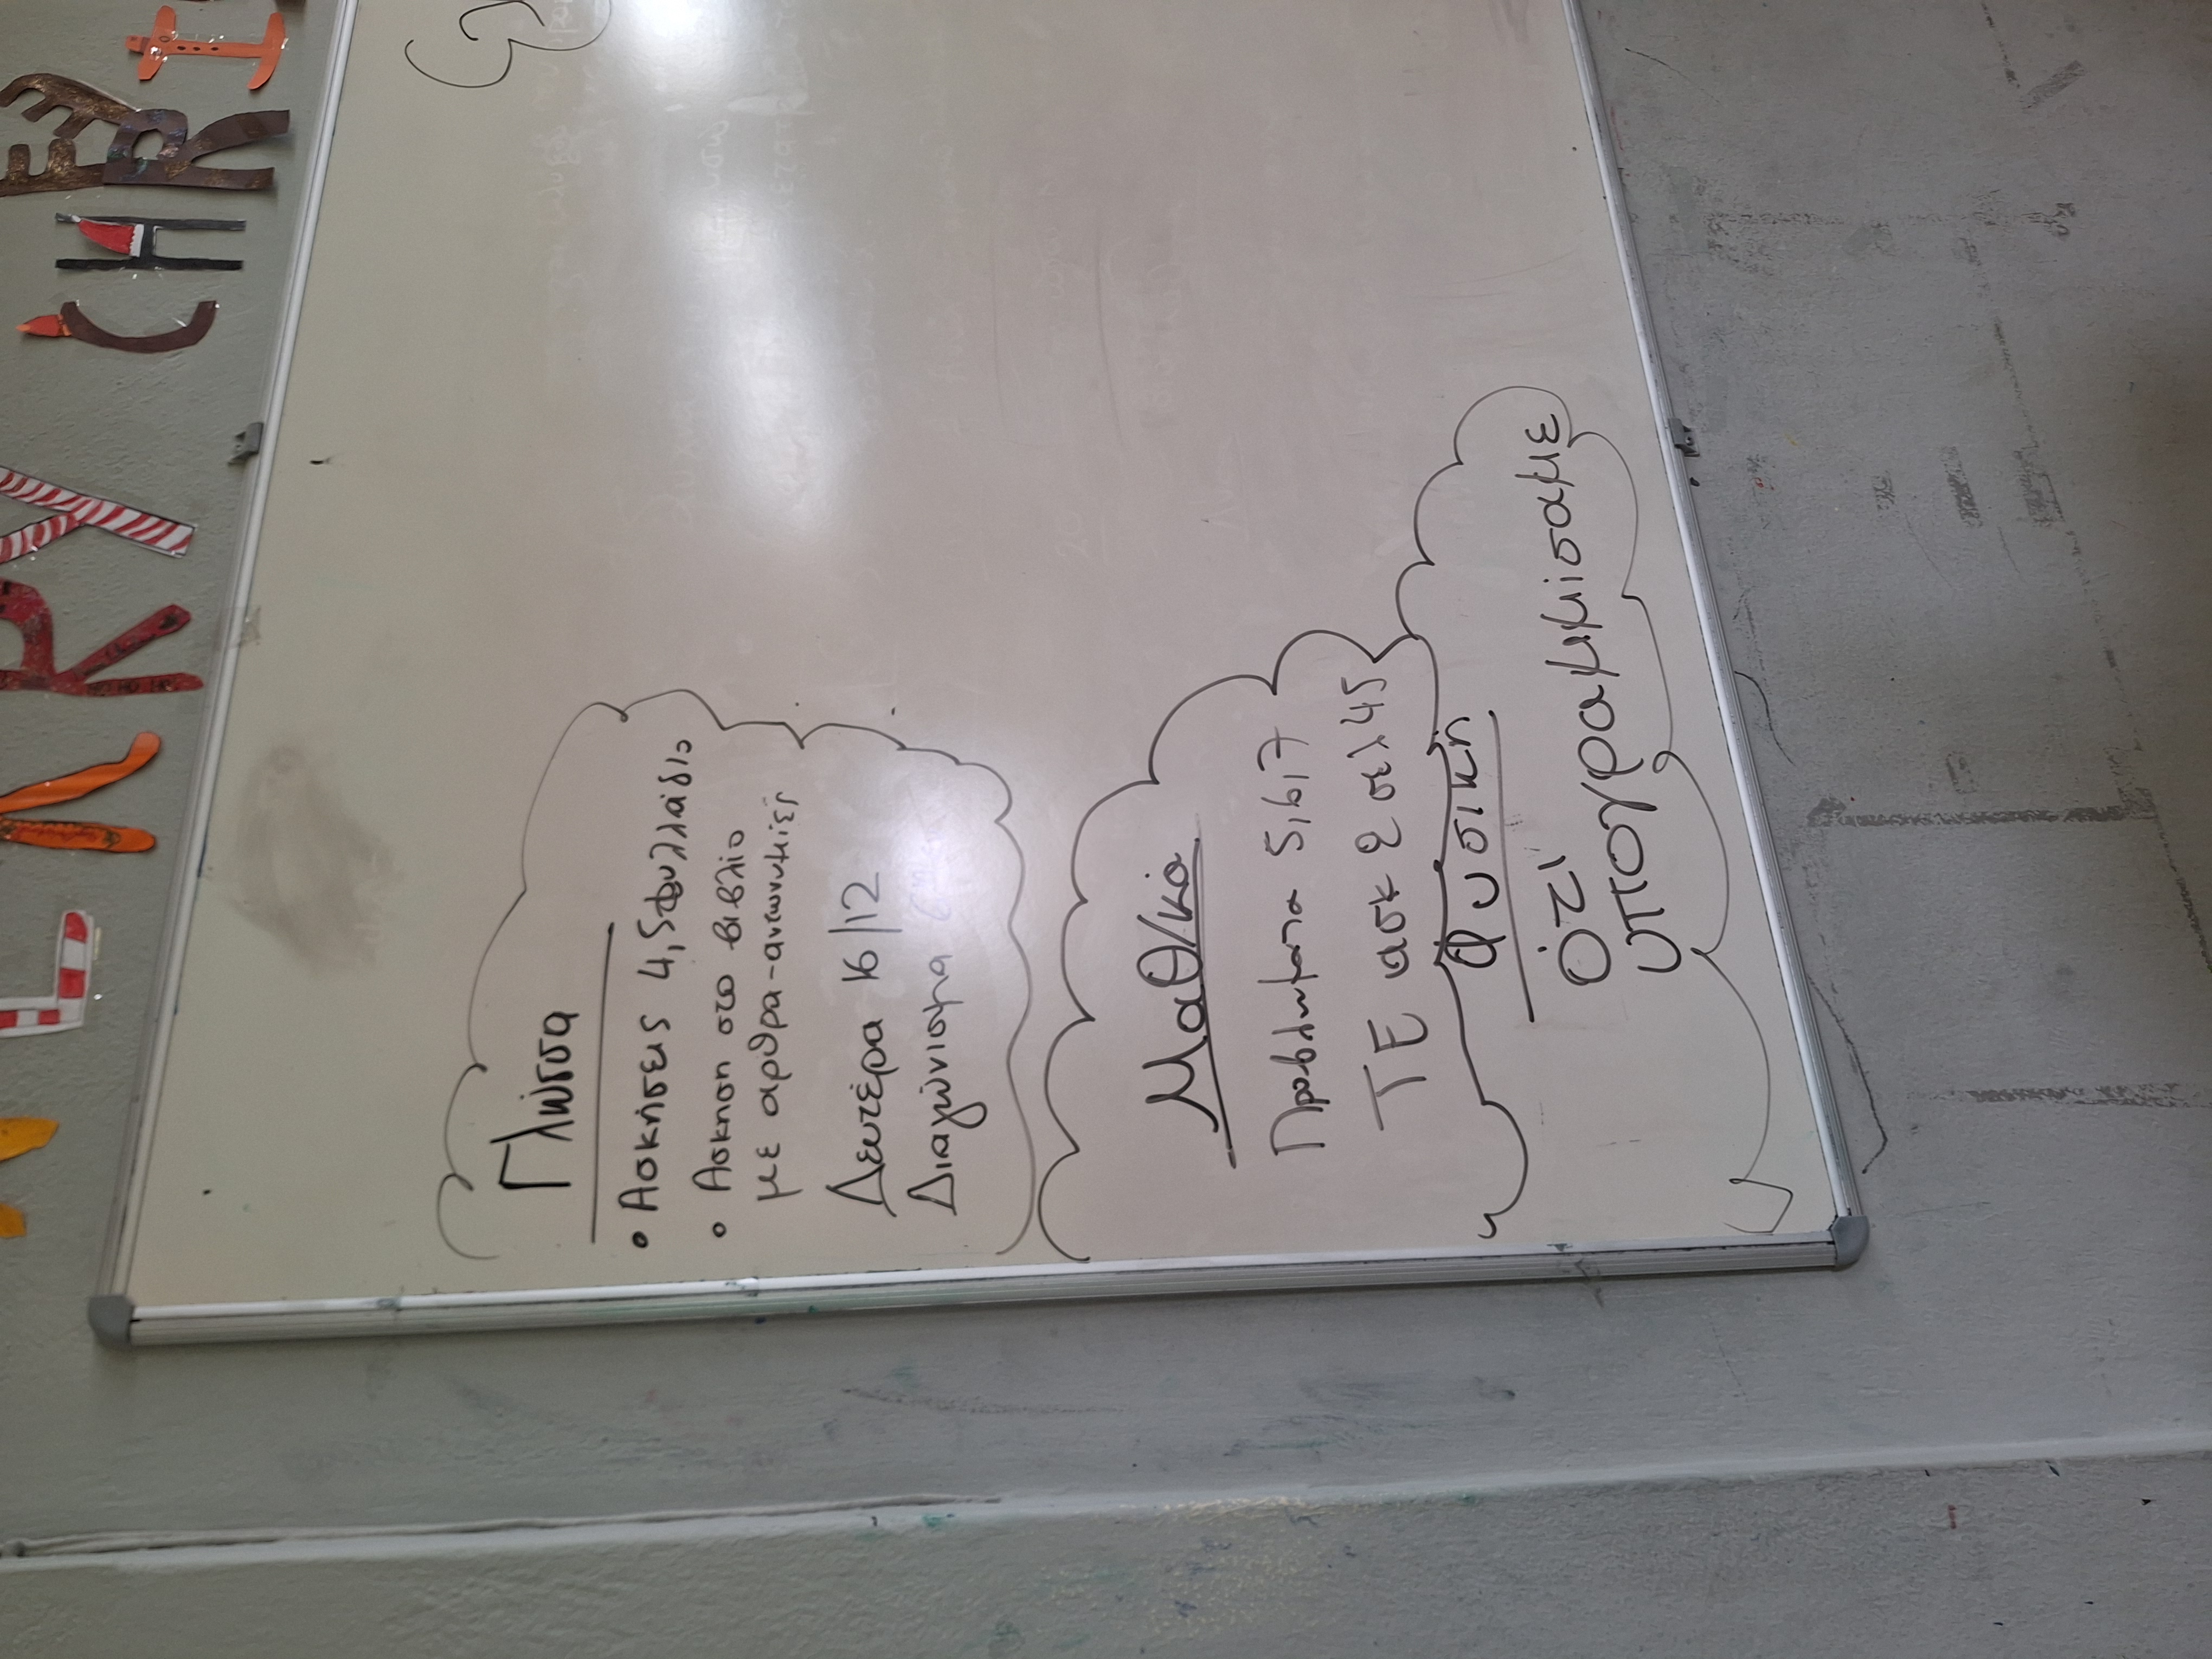 MERRY CHRI
Γλώσσα
• Ασκήσεις 4,5 φυλλάδιο
• Άσκηση στο βιβλίο
με άρθρα-αντωνυμίες
Δευτέρα 16/12
Διαγώνισμα
Μαθ/κά
Προβλήματα 5,6,7
ΤΕ ασκ 2 σελ 45
Φυσική
ό,τι
υπογραμμίσαμε